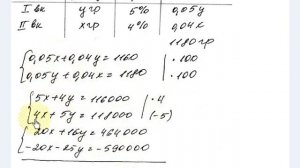 I вк угр 5% 0,05у
II вк хгр 4% 0,04х
1180гр
0,05х+0,04у=1160 | ·100
0,05у+0,04х=1180 | ·100
5х+4у=116000 | ·4
4х+5у=118000 | (-5)
20х+16у=464000
-20х-25у=-590000